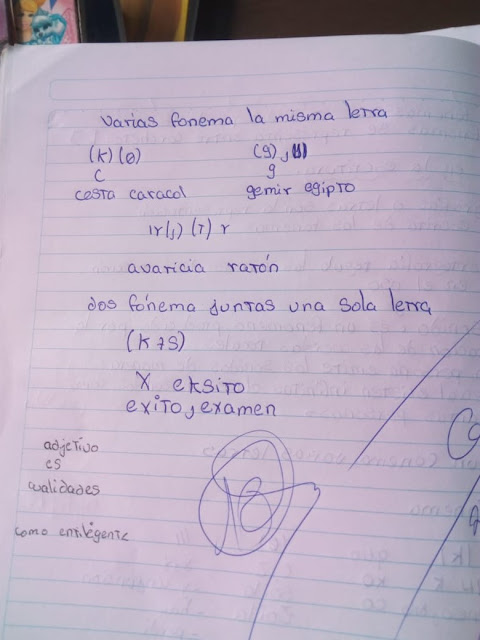 varias fonema la misma letra
(k) (θ)
(g),
c
g
cesta caracol
gemir egipto
(r) r
avaricia ratón
dos fónema juntas una sola letra
(k+s)
X eksito
exito, examen
adjetivo
es
cualidades
como entilégente